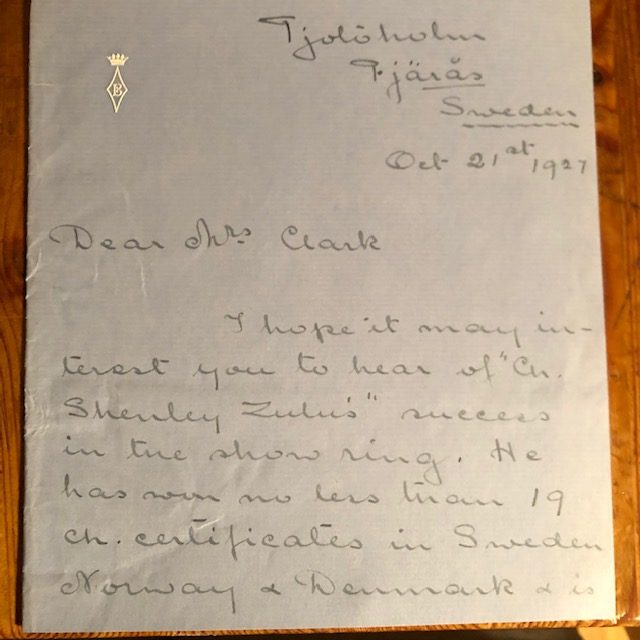 E
Tjolöholm
Fjärås
Sweden
Oct 21st 1927
Dear Mrs Clark
I hope it may in-
terest you to hear of "Ch.
Shenley Zulu's" success
in the show ring. He
has won no less than 19
ch. certificates in Sweden
Norway & Denmark & is